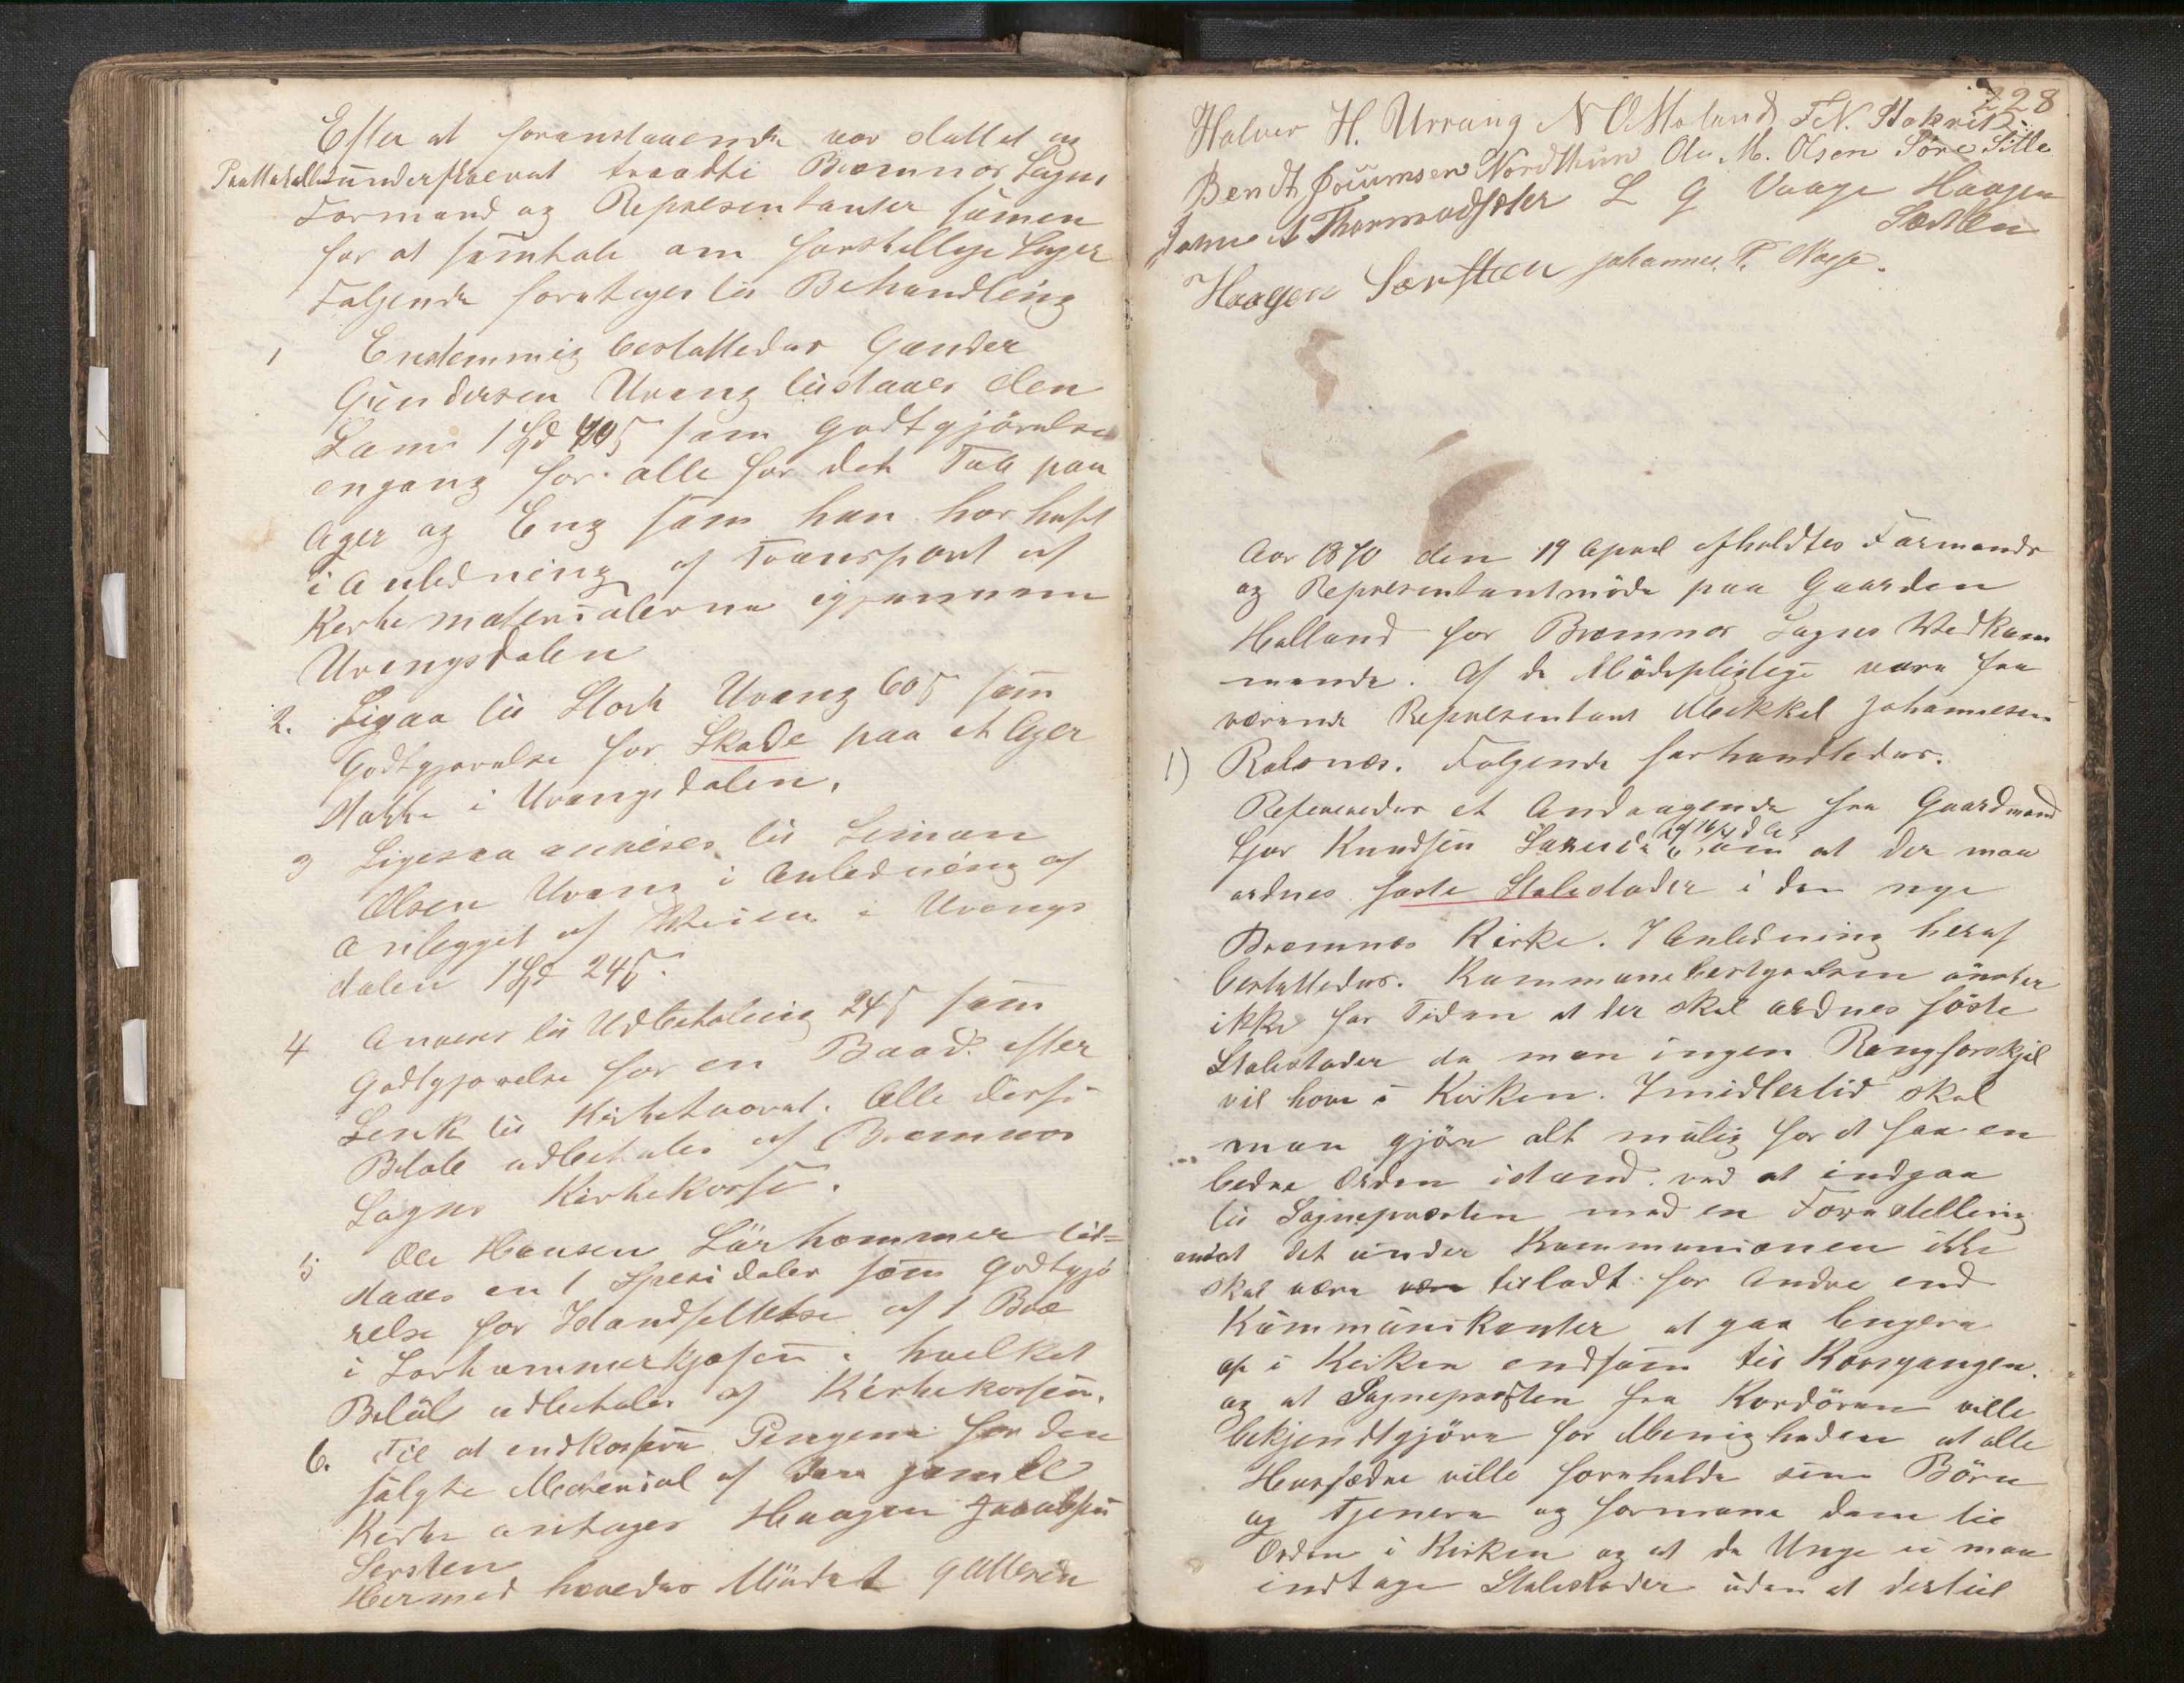 Efter at foranstaaende var sluttet og
underskrevet traadte Bremnæs Sogns
Formænd og Representanter samen
for at samtale om forskellige Sager
Følgende foretages til Behandling
1 Enstemmig besluttedes Gunder
Gundersen Urang tilstaaes den
Sum 1 Spd som godtgjörelse
engang for alle for det Tab paa
Ager og Eng som han har havt
i Anledning af Transport af
Kirkematerialerne igjennem
Urangsdalen
2. Ligsaa til Urang 60 s som
Godtgjørelse for Skade paa et Ager
stykke i Urangsdalen.
3 Ligesaa anvises til Simon
Olsen Urang i Anledning af
anlegget af Veien i Urangs
dalen 1 Spd 24 s.
4 Anvises til Udbetaling 24 s som
Godtgjørelse for en Baad efter
til Kirketaarnet. Alle disse
Beløb udbetales af Bremnæs
Sogns Kirkekasse.
5 Ole Hansen Lärhammer til=
staaes en 1 Spesidaler som godtgjö
relse for Istandsettelse af 1
i hvilket
Beløb udbetales af Kirkekassen.
6. Til at indkassere Pengene for den
solgte Material af den gamle
Kirke antages Haagen Jacobsen
Sersten
Hermed hævedes Mödet G Ollesen
228
Halver H. Urrang N O Moland T N. Stokvik
Bendt Nordthun Ole M. Olsen Töre Sille
A Thormodsæter L G Vaage Haagen
Særsten
Haagen Særsten Johannes P. Vaage.
Aar 1870 den 19 April afholdtes Formands
og Representantmöde paa Gaarden
Halland for Bremnæs Sogns Vedkom
mende. Af de Mödepligtige vare fra
værende Representant Mikkel Johannesen
1) Rolsnæs. Følgende forhandledes.
Refereredes et Andragende fra Gaardmand
Gjor Knudsen af 16/4 d A om at der maa
ordnes faste Stolestader i den nye
Bremnæs Kirke. I Anledning heraf
besluttedes. Kommunebestyrelsen önsker
ikke for Tiden at der skal ordnes faste
Stolestader da man ingen Rangforskjel
vil have i Kirken. Imidlertid skal
man gjöre alt mulig for at faa en
bedre Orden istand. ved at indgaa
til Sognepræsten med en Forestelling
at det under Kommunionen ikke
skal være tilladt for Andre end
Kommunikanter at gaa længere
op i Kirken endsom til Korsgangen.
og at Sognepresten fra Kordören ville
bekjendtgjöre for Menigheden at alle
Husfædre ville foreholde sine Börn
og Tjenere og formane dem til
Orden i Kirken og at de Unge ei maa
indtage Stolestader uden at dertil